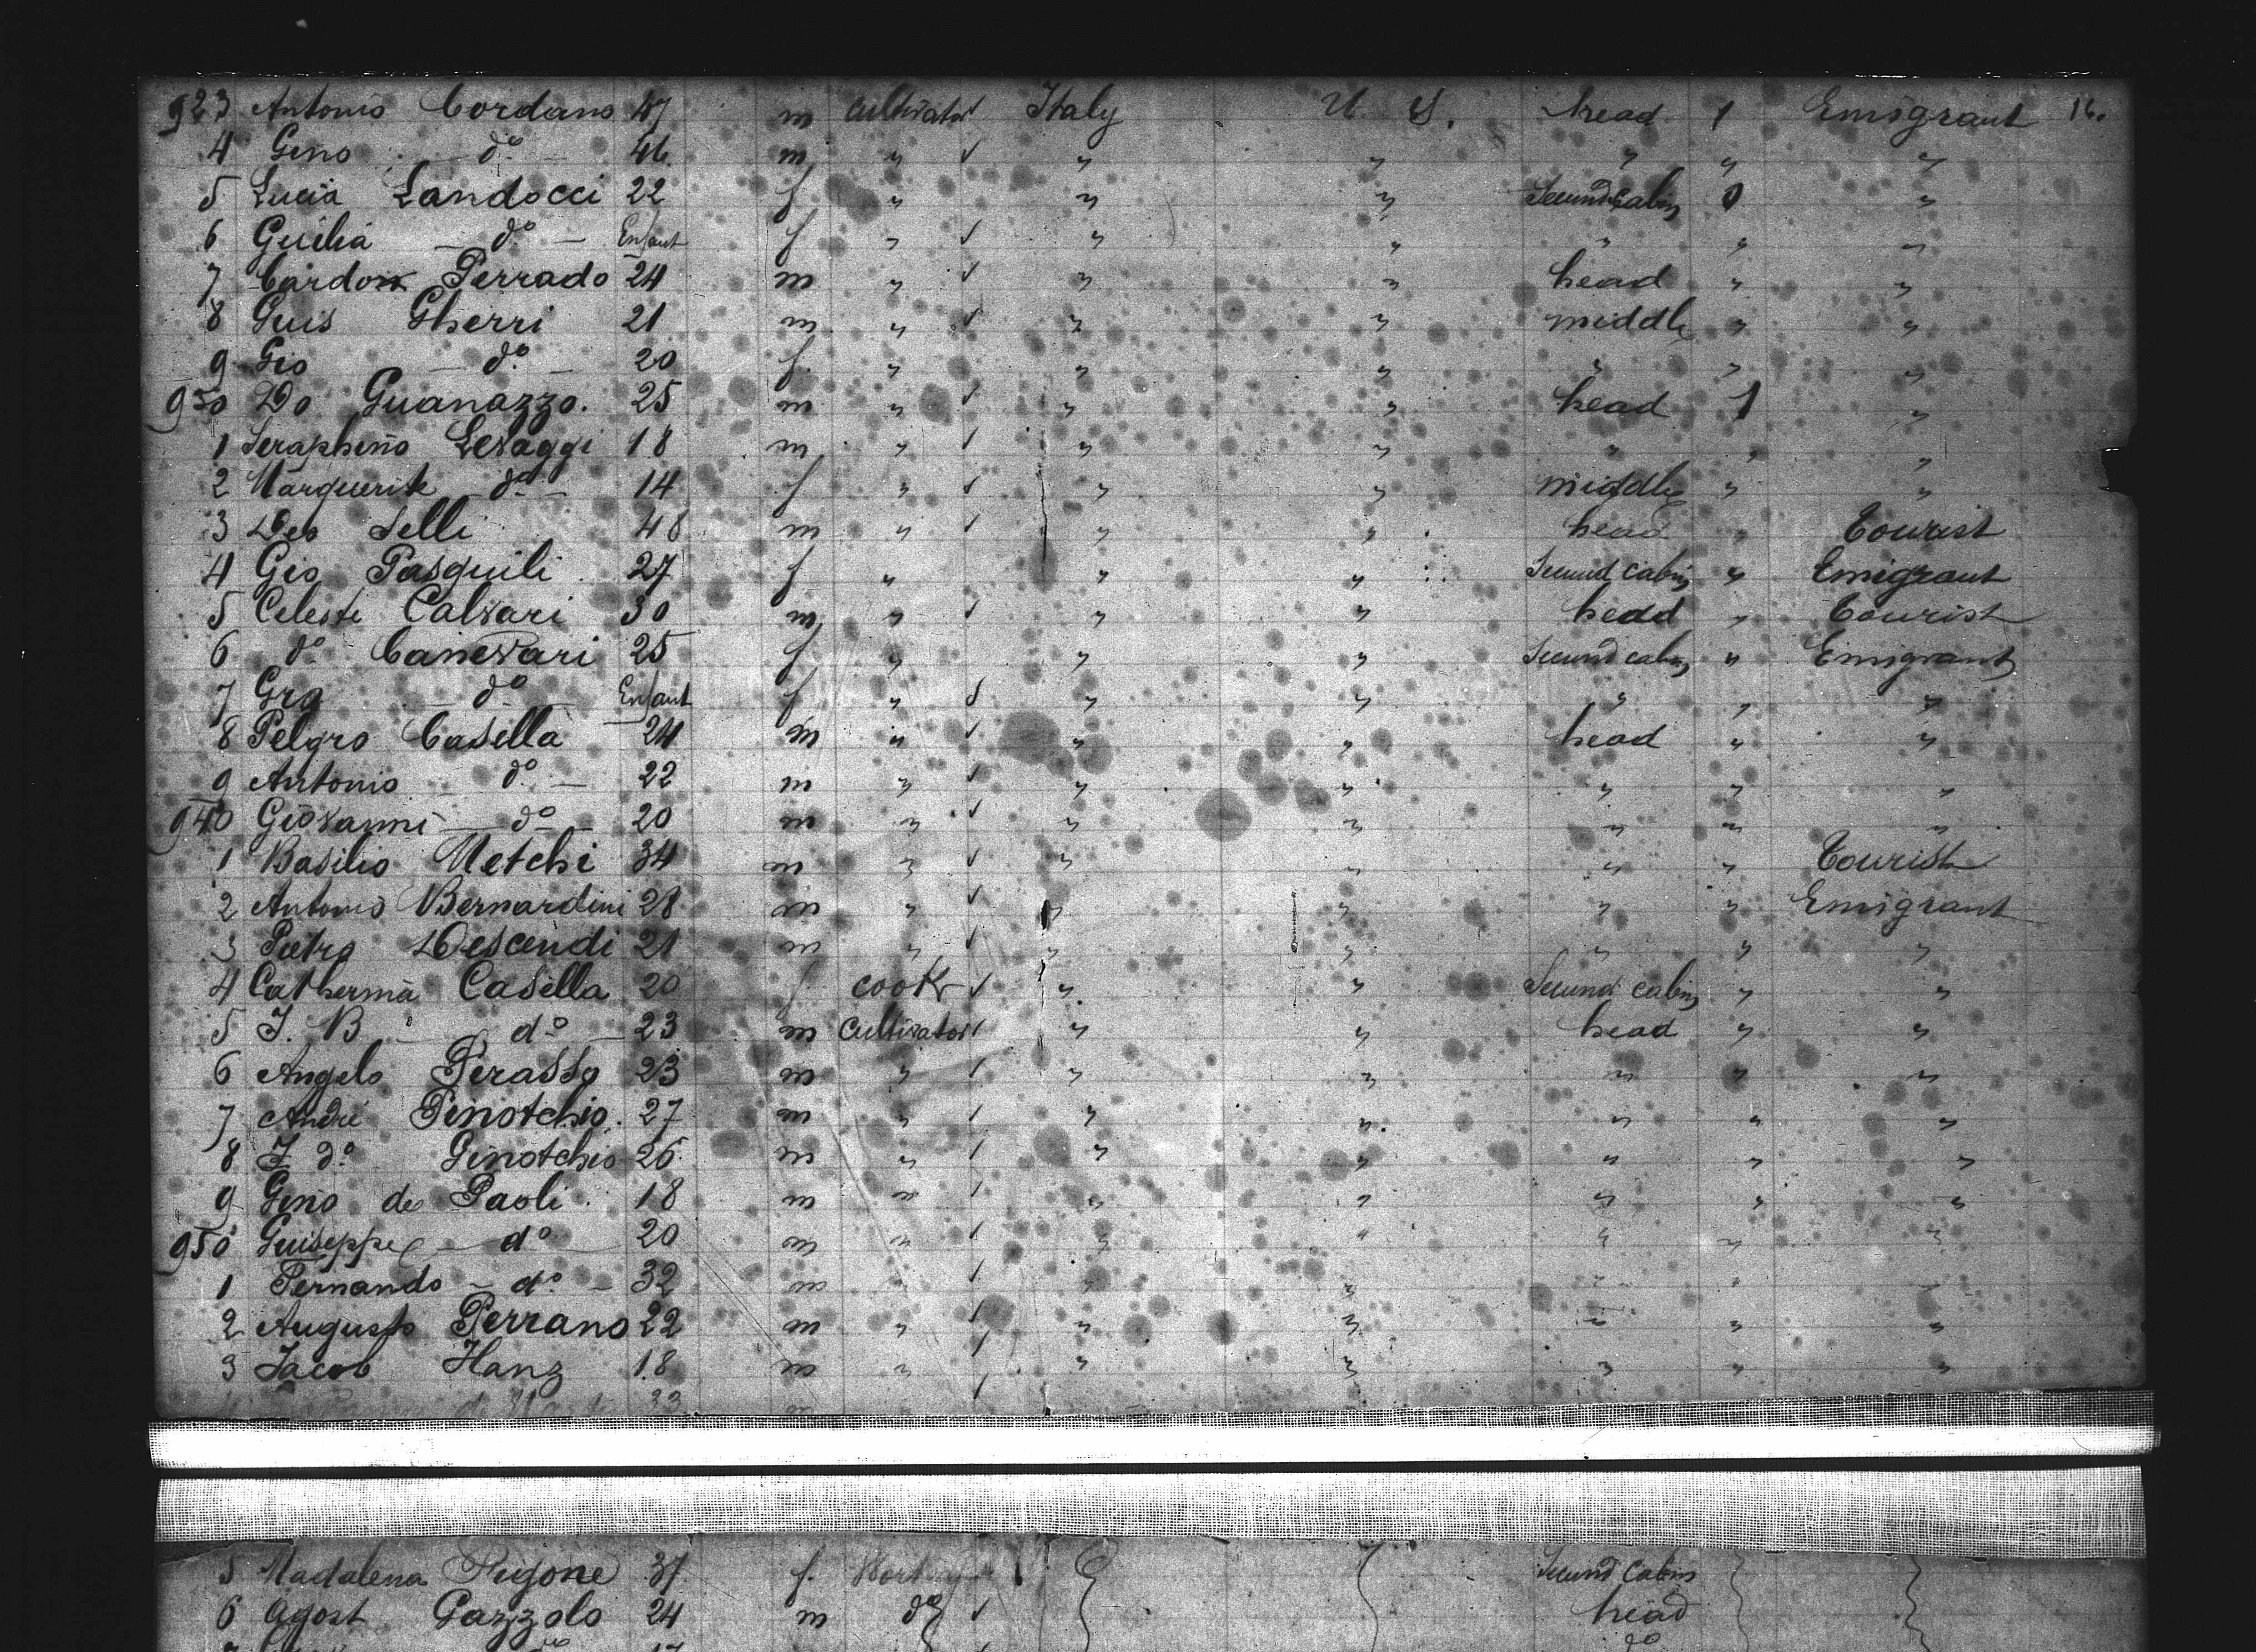 923 Antonio Cordano 47 m cultivator ✓ Italy U. S. head 1 Emigrant 16.
4 Geno — do — 46 m " ✓ " " " " "
5 Lucia Landocci 22 f " " " Secund cabin 0 "
6 Guilia — do — Enfant f " ✓ " " " " "
7 Cardon Perrado 24 m " ✓ " " head " "
8 Guis Gherri 21 m " ✓ " " middle " "
9 Gio — do — 20 f. " " " " " "
930 Do Guanazzo. 25 m " ✓ " " head 1 "
1 Seraphino Levaggi 18 m " ✓ " " " " "
2 Marguerite do — 14 f " ✓ " " middle " "
3 Deo Selli 48 m " ✓ " " head " Tourist
4 Gio Pasquili 27 f " " " Secund cabin " Emigrant
5 Celeste Calvari 30 m " ✓ " " head " Tourist
6 do Canevari 25 f " " " Secund cabin " Emigrant
7 Gra — do Enfant f " ✓ " " " " "
8 Pelgro Casella 24 m " ✓ " " head " "
9 Antonio — do — 22 m " ✓ " " " " "
940 Giovanni — do — 20 m " ✓ " " " " "
1 Basilio Metchi 34 m " ✓ " " " " Tourist
2 Antonio Bernardini 28 m " ✓ " " " " Emigrant
3 Pietro Descendi 21 m " ✓ " " " " "
4 Catherina Casella 20 f cook ✓ " " Secund cabin " "
5 J. B — do — 23 m Cultivator ✓ " " head " "
6 Angelo Perasso 23 m " ✓ " " " " "
7 André Pinotchio. 27 m " ✓ " " " " "
8 J do Ginotchio 26 m " ✓ " " " " "
9 Geno de Paoli 18 m " ✓ " " " " "
950 Guiseppe — do 20 m " ✓ " " " " "
1 Fernando — do — 32 m ✓ " " " " "
2 Augusto Ferrano 22 m " ✓ " " " " "
3 Jacob Hanz 18 m " ✓ " " " " "
33 m ✓
5 Madalena Rigone 37 f. Secund Cabin
6 Agost Gazzolo 24 m do ✓ head
17 do